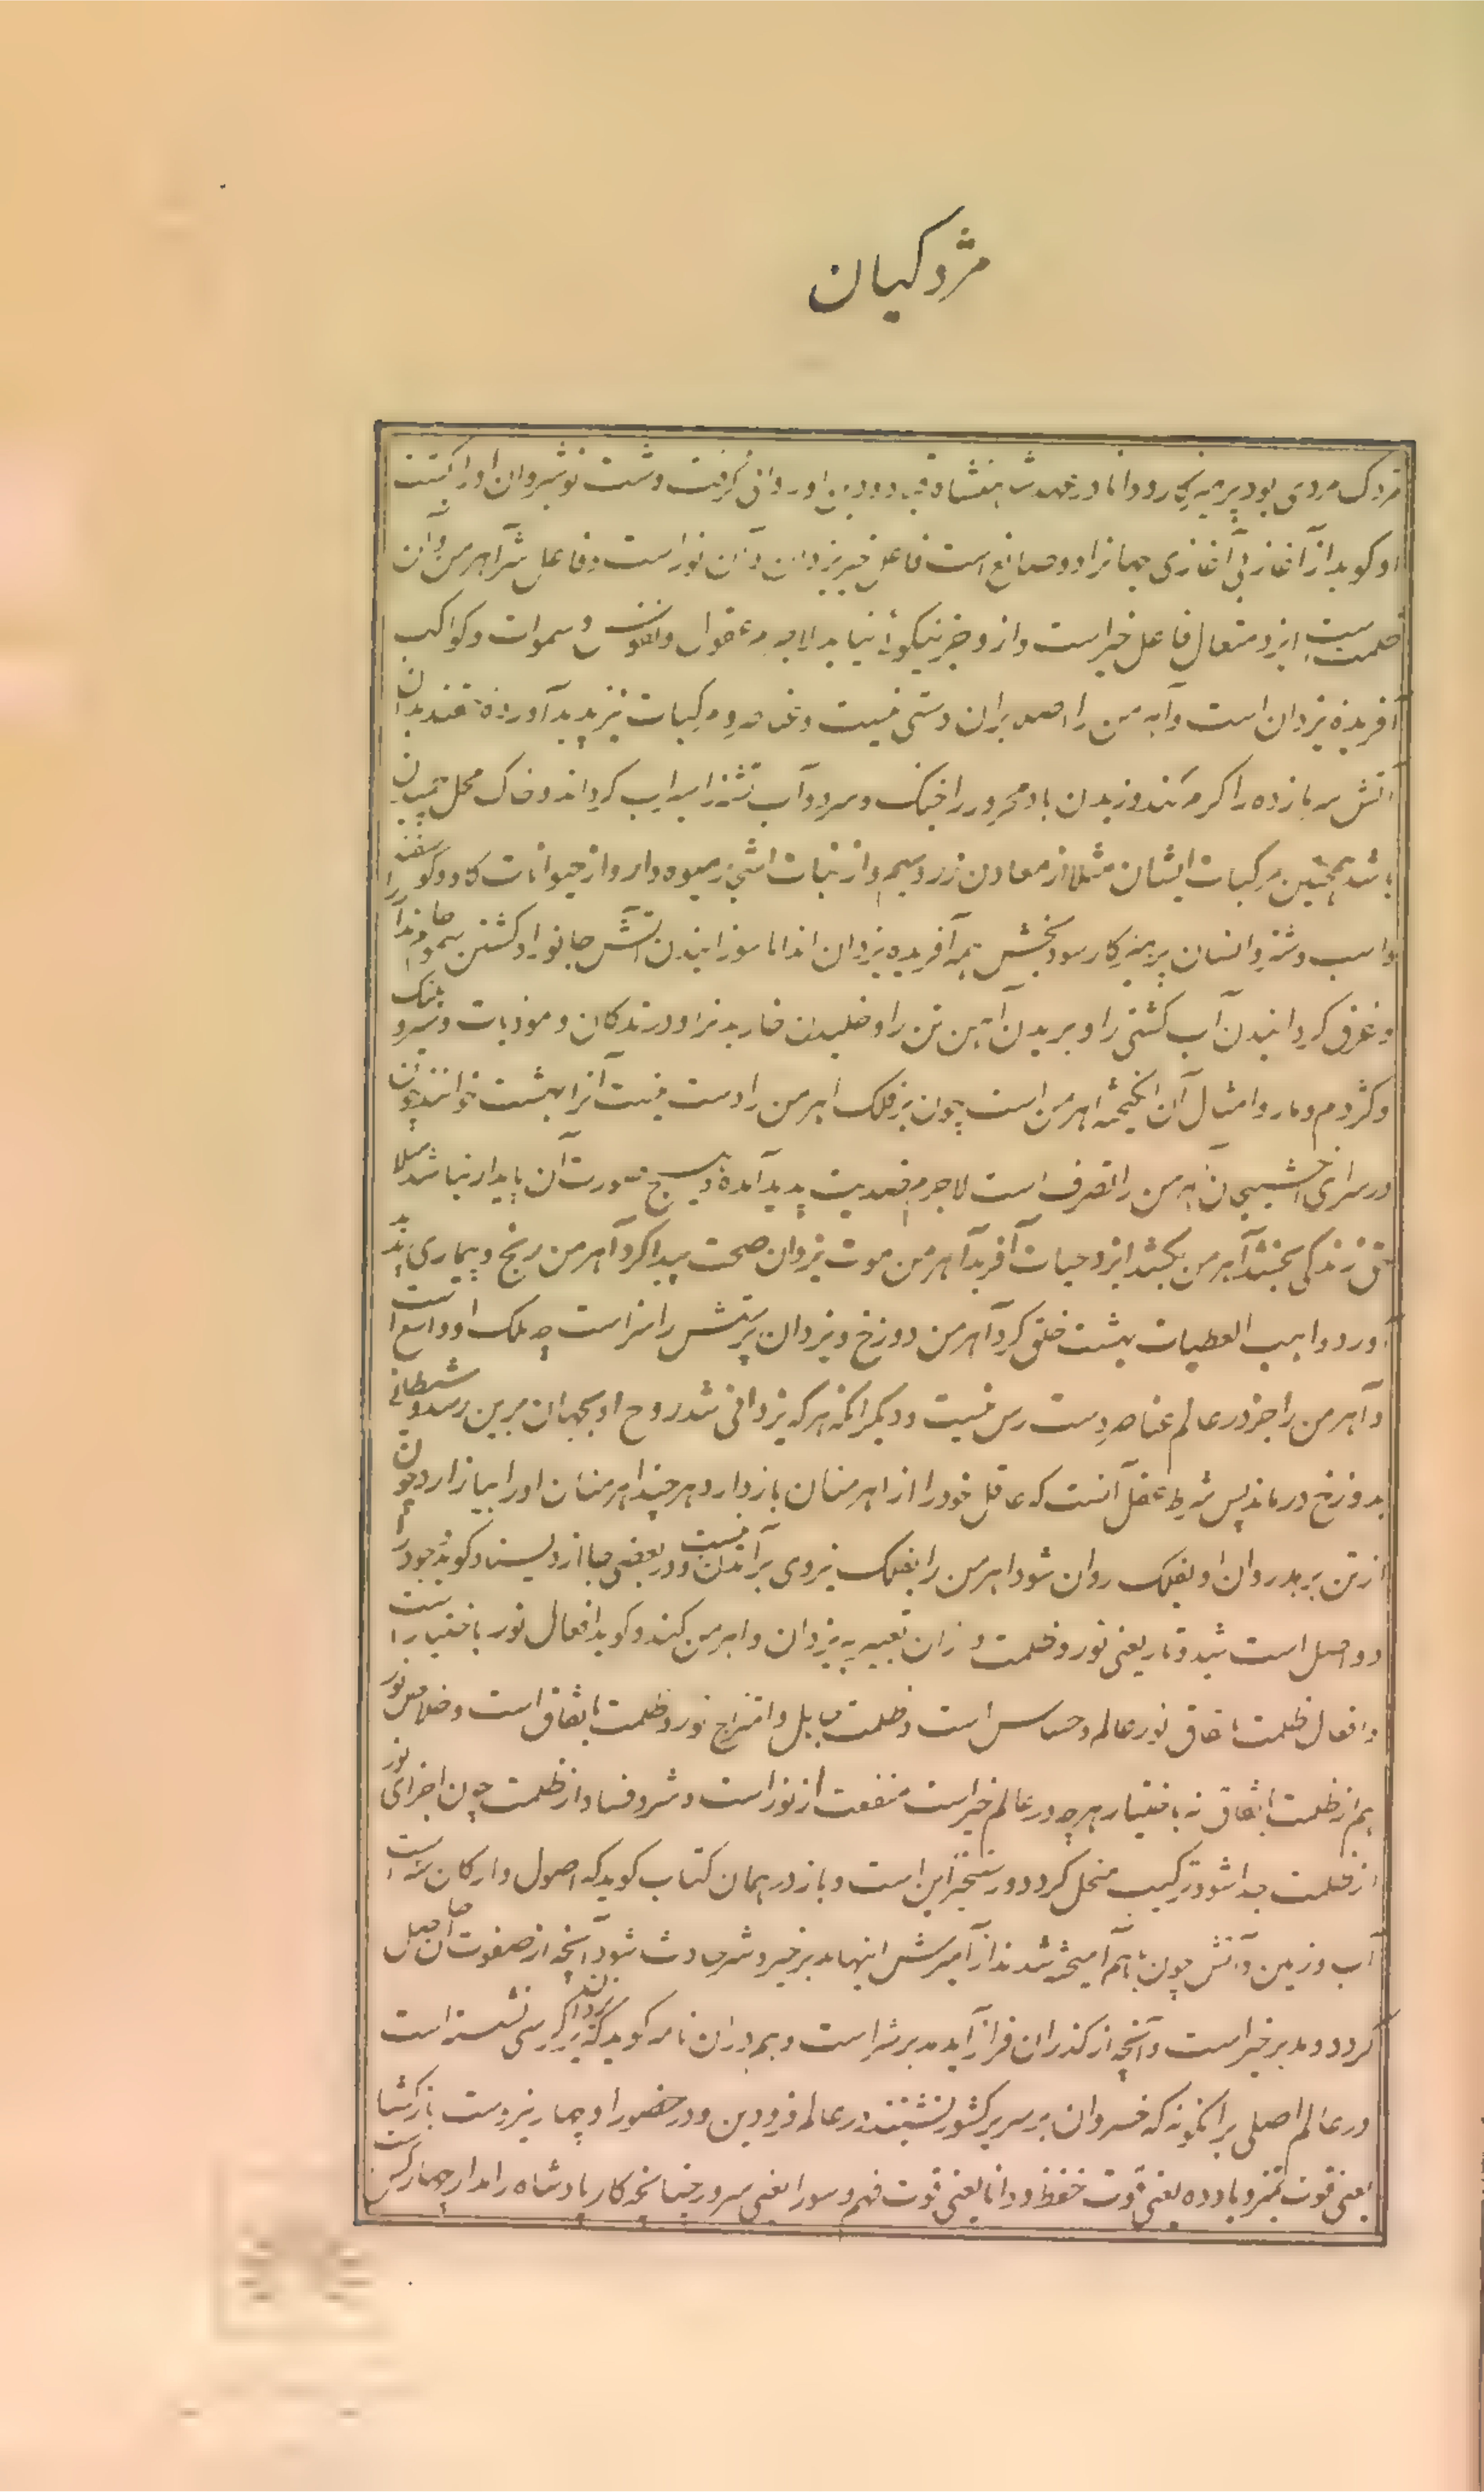 مژدکیان
مزدک مردی بود پرهیزکار و دانا در عهد شاهنشاه قباد و دین او روائی گرفت و شت نوشیروان او را بکشت
او کوید از آغاز بی آغازی جهانرا دو صانع است فاعل خیر یزدان و آن نور است و فاعل شر اهرمن و آن
ظلمت است ایزد متعال فاعل خیر است و از و جز نیکوئی نیاید لاجرم عقول و نفوس و سموات و کواکب
آفریدۀ یزدان است و آهرمن را اصلا بران دستی نیست و عناصر و مرکبات نیز پدید آوردۀ
آتش سرمازده را کرم کند و وزیدن باد محرور را خنک و سرد و آب تشنه را سیراب کرداند و خاک محل
باشد همچنین مرکبات ایشان مثلا از معادن زر و سیم و از نباتات اشجار میوه دار و از حیوانات کاو و کوسفند
و اسب و شتر و انسان پرهیزکار سودبخش همه آفریدۀ یزدان اند اما سوزانیدن آتش جانور را و کشتن سموم جاندار را
و غرق کردانیدن آب کشتی را و بریدن آهن تن را و خلیدن خار بدنرا و درندکان و موذیات و شیر و پلنک
و کژدم و مار و امثال آن انکیختۀ اهرمن است چون بر فلک اهرمن را دست نیست آنرا بهشت خوانند و چون
در سرای آخشیجان اهرمن را تصرف است لاجرم ضدیت پدید آمده و هیچ صورت آن پایدار نباشد مثلا
حق زندکی بخشد آهرمن بکشد ایزد حیات آفرید آهرمن موت یزدان صحت پیدا کرد آهرمن رنج و بیماری پدید
آورد واهب العطیات بهشت خلق کرد آهرمن دوزخ و یزدان پرستش را سزا است چه ملک او واسع است
و آهرمن را جز در عالم عناصر دست رس نیست و دیکر انکه هر که یزدانی شد روح او بجهان برین رسد و شیطانی
بدوزخ درماند پس شرط عقل آنست که عاقل خود را از اهرمنان باز دارد هر چند اهرمنان او را بیازارد چون
از تن برهد روان او بفلک روان شود اهرمن را بفلک نیروی برآمدن نیست و در بعضی جا از دیسناد کوید وجود را
دو اصل است شید و تار یعنی نور و ظلمت و زان تعبیر به یزدان و اهرمن کند و کوید افعال نور باختیار است
و افعال ظلمت باتفاق نور عالم و حساس است و ظلمت جاهل و امتزاج نور و ظلمت باتفاق است و خلاص نور
هم از ظلمت باتفاق نه باختیار هر چه در عالم خیر است منفعت از نور است و شر و فساد از ظلمت چون اجزای نور
از ظلمت جدا شود ترکیب منحل کردد و رستخیز این است و باز در همان کتاب کوید که اصول و ارکان سه است
آب و زمین و آتش چون باهم آمیخته شدند از آمیزش اینها مدبر خیر و شر حادث شود آنچه از صفوت آن حاصل
کردد مدبر خیر است و آنچه از کدران فراز آید مدبر شر است و هم دران نامه کوید که یزدان بر کرسی نشسته است
در عالم اصلی برانکونه که خسروان بر سریر کشور نشینند در عالم فرودین و در حضور او چهار نیرو دست بازکشا
یعنی قوت تمیز و یادده یعنی قوت حفظ و دانا یعنی قوت فهم و سورا یعنی سرور چنانچه کار پادشاه را مدار چهار کس است